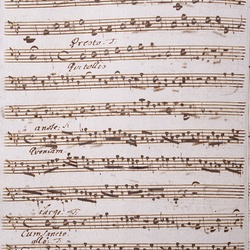 Presto
Qui tollis
andte
Veniam
largo
Cum sancto
allo